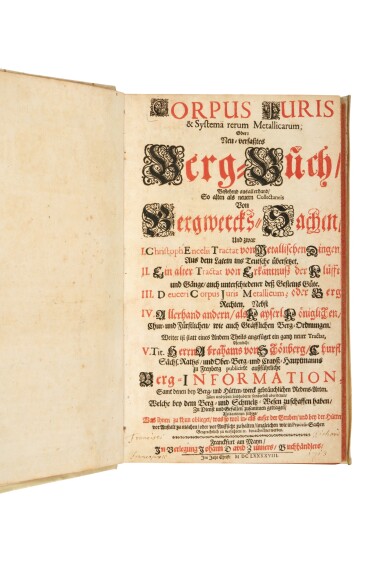 CORPUS JURIS
& Systema rerum Metallicarum,
Oder:
Neu-verfaßtes
Berg-Buch/
So alten als neuen Collectaneis
Von
Bergwercks-Sachen/
Und zwar
I. Christoph Encelii Tractat von Metallischen Dingen,
Aus dem Latein ins Teutsche übersetzet.
II. Ein alter Tractat von Erkantnuß der Klüffte
und Gänge/ auch unterschiedener deß Gesteins Güte.
III. Deucers Corpus Juris Metallicum; oder Berg-
Rechten, Nebst
IV. Allerhand andern/ als Kayserl. Königlichen/
Chur- und Fürstlichen/ wie auch Gräfflichen Berg-Ordnungen.
Weiter ist statt eines Andern Theils angefüget ein gantz neuer Tractat,
Nemlich:
V. Tit. Herrn Abrahams von Schönberg/ Churfl.
Sächs. Raths/ und Ober-Berg- und Crayß-Hauptmanns
zu Freyberg publicirte ausführliche
Berg-INFORMATION,
Samt denen bey Berg- und Hütten-werck gebräuchlichen Redens-Arten.
Welche bey dem Berg- und Schmeltz-Wesen zuschaffen haben/
Zu Dienst und Gefallen zusammen getragen/
Franckfurt am Mayn/
In Verlegung Johann David Zunners/ Buchhändlers/
Im Jahr Christi M DC LXXXXVIII.